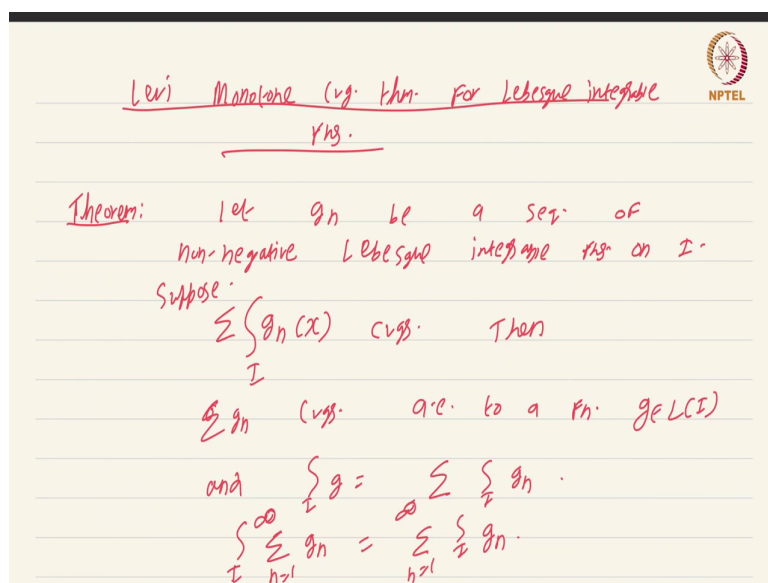 Levi Monotone Cvg. thm. For Lebesgue integrable
fns.
NPTEL
Theorem: let gn be a seq. of
non-negative Lebesgue integrable fns. on I.
Suppose.
Σ ∫_I gn(x) cvgs. Then
Σ gn cvgs. a.e. to a Fn. g∈L(I)
and ∫_I g = Σ ∫_I gn.
∫_I Σ_{n=1}^∞ gn = Σ_{n=1}^∞ ∫_I gn.